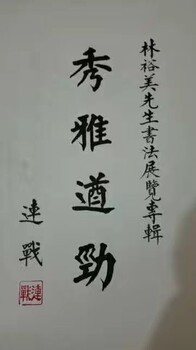 林裕美先生書法展覽專輯
秀雅遒勁
連戰
連戰